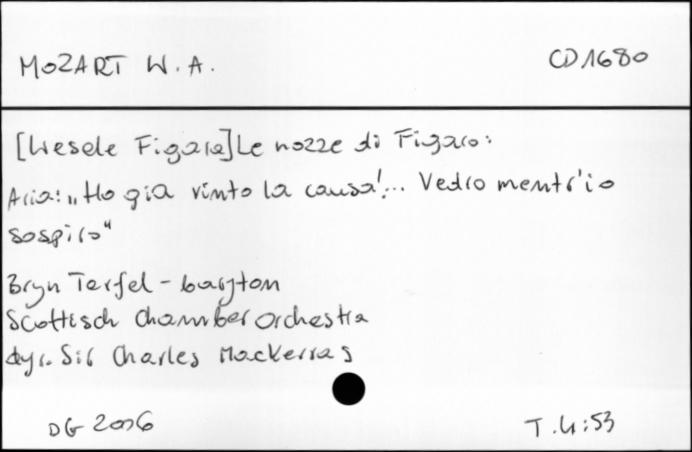 MOZART W. A.
CD 1680
[Wesele Figara] Le nozze di Figaro:
Aria: „Ho già vinto la causa!... Vedro mentr'io
sospiro"
Bryn Terfel - baryton
Scottisch Chamber Orchestra
dyr. Sir Charles Mackerras
DG 2006
T. 4:53